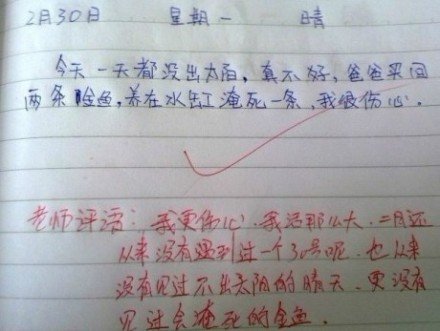 2月30日 星期一 晴
今天一天都没出太阳,真不好,爸爸买回
两条金鱼,养在水缸淹死一条,我很伤心.
老师评语:我更伤心.我活那么大,二月还
从来没有遇到过一个30号呢,也从来
没有见过不出太阳的晴天,更没有
见过会淹死的金鱼.